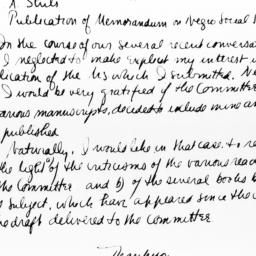 A. Shils
Publication of Memorandum on Negro Social S
In the course of our several recent conversa
I neglected to make explicit my interest i
lication of the MS which I submitted. Na
I would be very gratified if the Committe
various manuscripts, decided to include mine am
published
Naturally, I would like in that case to re
the light of the criticisms of the various read
the Committee and b) of the several books b
subject, which have appeared since the
draft delivered to the Committee.